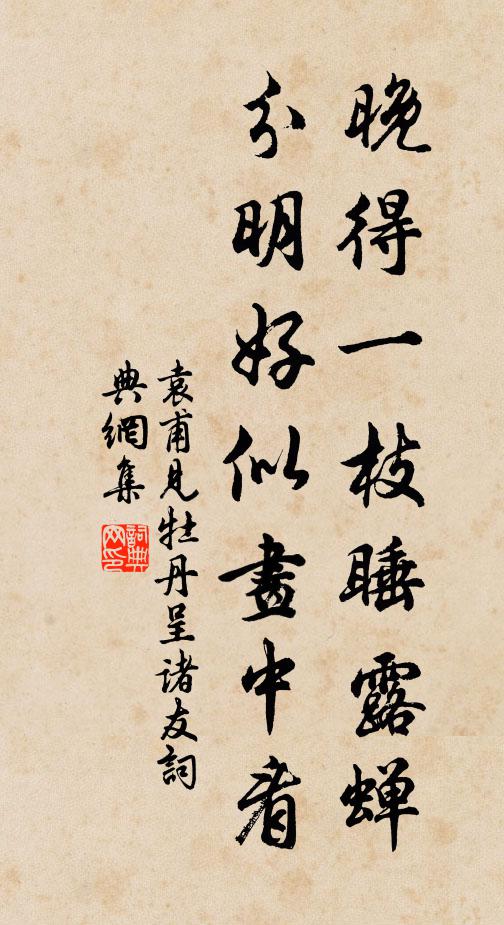 晚得一枝睡露蝉
分明好似畫中看
袁甫見牡丹呈诸友詞
典網集
詞典網印